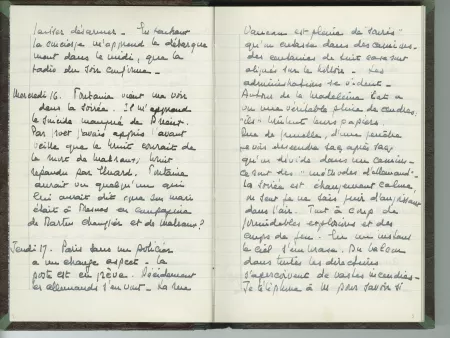 laisser désarmer. En rentrant
la concierge m'apprend le débarque
ment dans le midi, que la
radio du soir confirme.
Mercredi 16. Fontaine vient me voir
dans la soirée. Il m'apprend
le suicide manqué de
Par j'avais appris l'avant
veille que le bruit courait de
la mort de Malraux, bruit
répandu par Éluard. Fontaine
aurait vu quelqu'un qui
lui aurait dit que son mari
était à en compagnie
de Martin Chauffier et de Malraux?
Jeudi 17. Paris sans un policier
a un change aspect. La
poste est en grève. Décidément
les allemands s'en vont. La rue
est pleine de "
qu'on entasse dans des camions
des centaines de lit
alignés sur le trottoir. Les
administrations se vident.
Autour de la Madeleine c'est
une véritable pluie de cendres,
"ils" brûlent leurs papiers.
Rue de d'une fenêtre
je vois descendre sac après sac
qu'on dans un camion.
Ce sont des "méthodes d'allemand".
La soirée est étrangement calme,
on sent je ne sais quoi d'angoissant
dans l'air. Tout à coup de
formidables explosions et des
coups de feu. En un instant
le ciel s'embrase. Du balcon
dans toutes les directions
s'aperçoivent de vastes incendies.
Je téléphone à M pour savoir si